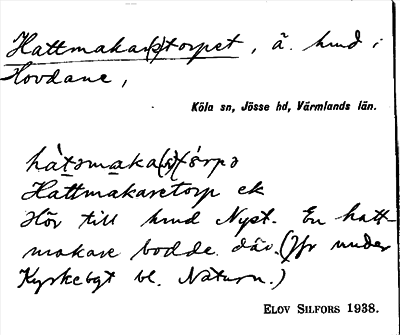 Hattmakar(e)torpet, ä. hmd i
Hovdane,
Köla sn, Jösse hd, Värmlands län.
hàt̲əma̲ka(s)tórpə
Hattmakaretorp ek
Hör till hmd Nypt. En hatt-
makare bodde där. (Jfr under
Kyrkebyt bl. Naturn.)
ELOV SILFORS 1938.